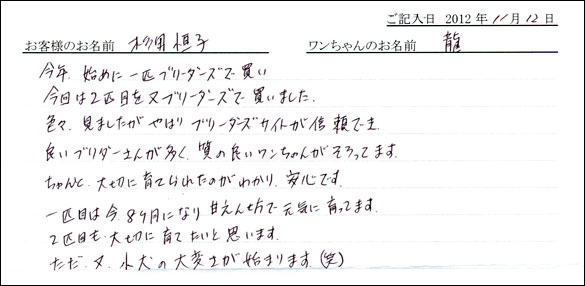 ご記入日 2012年11月12日
お客様のお名前 杉岡恒子 ワンちゃんのお名前 龍
今年、始めに一匹ブリーダーズで買い
今回は2匹目を又ブリーダーズで買いました。
色々、見ましたがやはりブリーダーズサイトが信頼でき、
良いブリダーさんが多く、質の良いワンちゃんがそろってます。
ちゃんと、大切に育てられたのがわかり、安心です。
一匹目は今、8ヶ月になり甘えん坊で元気に育ってます。
2匹目も、大切に育てたいと思います。
ただ、又、小犬の大変さが始まります(笑)